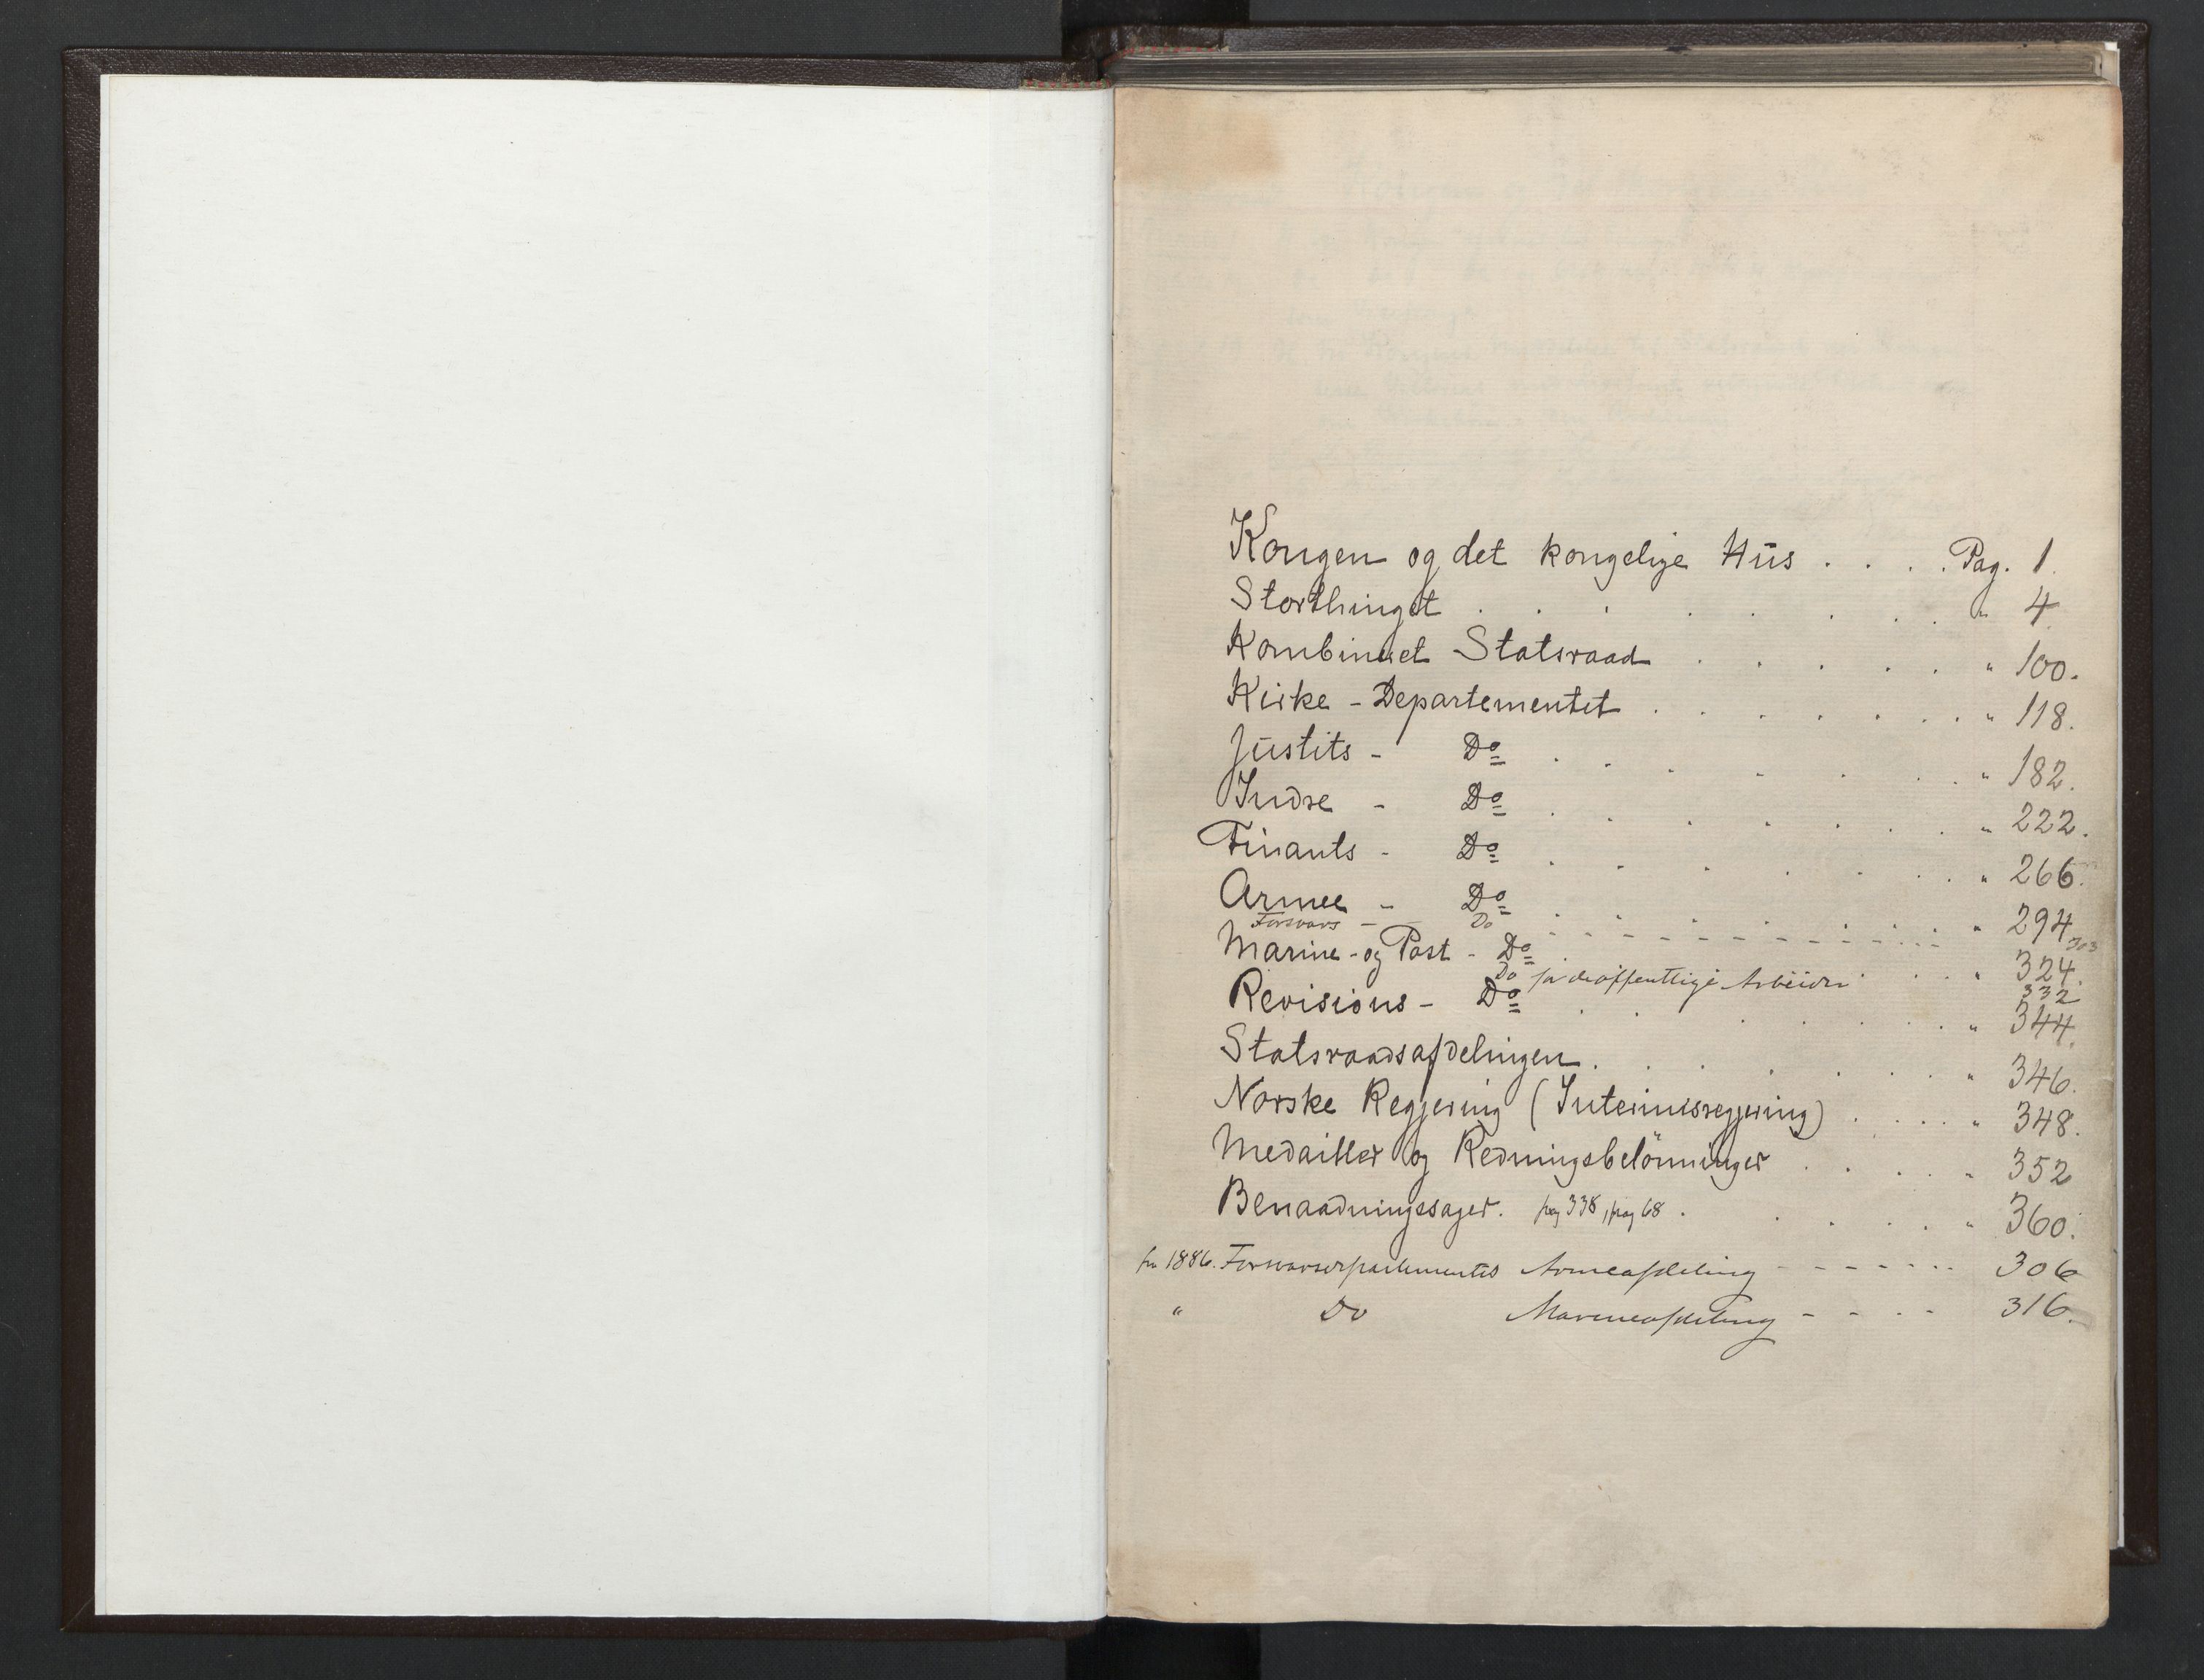 Kongen og det kongelige Hus . . . . Pag. 1.
Storthinget . . . . . . . . " 4.
Kombineret Statsraad . . . . . . " 100.
Kirke - Departementet . . . . . . . . " 118.
Justits - Do . . . . . . . " 182.
Indre - Do . . . . . . . " 222.
Finants - Do . . . . . . . " 266.
Armee - Do . . . . . . " 294
Forsvars - Do - - - - - - - - - - 303
Marine - og Post - Do . . . . " 324.
Do for de offentlige Arbeider 332
Revisions - Do . . . . . . . " 344.
Statsraadsafdelingen . . . . . . . " 346.
Norske Regjering (Interimsregjering) . . . . . " 348.
Medailler og Redningsbelönninger . . . . " 352
Benaadningssager. pag 338, pag 68 . . . . . . " 360.
fra 1886. Forsvarsdepartementets Armeafdeling - - - - - - - 306
" Do Marineafdeling - - - - 316.